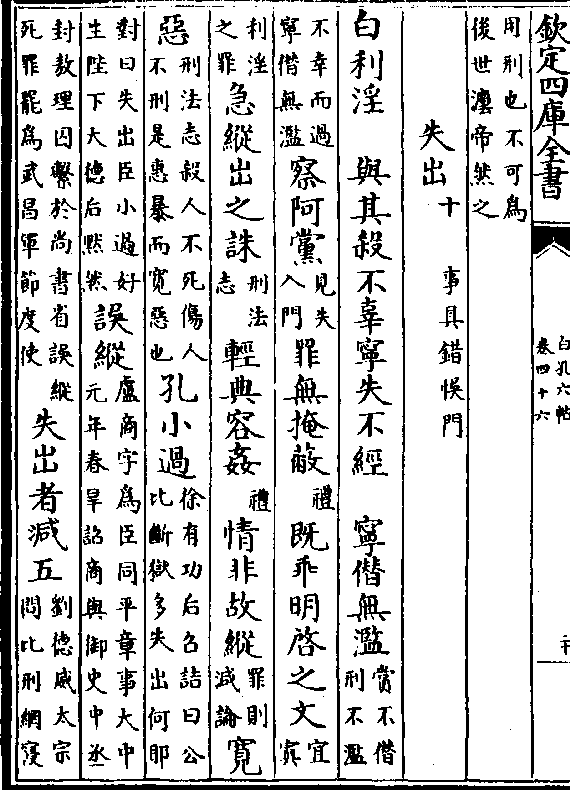 欽定四庫全書
白孔六帖
卷四十六
用刑也不可為後世灋帝然之
失出十 事具錯悞門
白利淫 與其殺不辜寧失不經 寧僭無濫賞不僭刑不濫
不幸而過寧僭無濫察阿黨見失入門罪無掩蔽禮既乖明啓之文宜寘
利淫之罪急縱出之誅刑法志輕典容姦禮情非故縱罪則減論寛
惡刑法志殺人不死傷人不刑是惠暴而寛惡也孔小過徐有功后召詰曰公比斷獄多失出何耶
對曰失出臣小過好生陛下大德后黙然誤縱盧商字為臣同平章事大中元年春旱詔商與御史中丞
封敖理囚繫於尚書省誤縱死罪罷為武昌軍節度使失出者減五劉德威太宗問比刑網寖